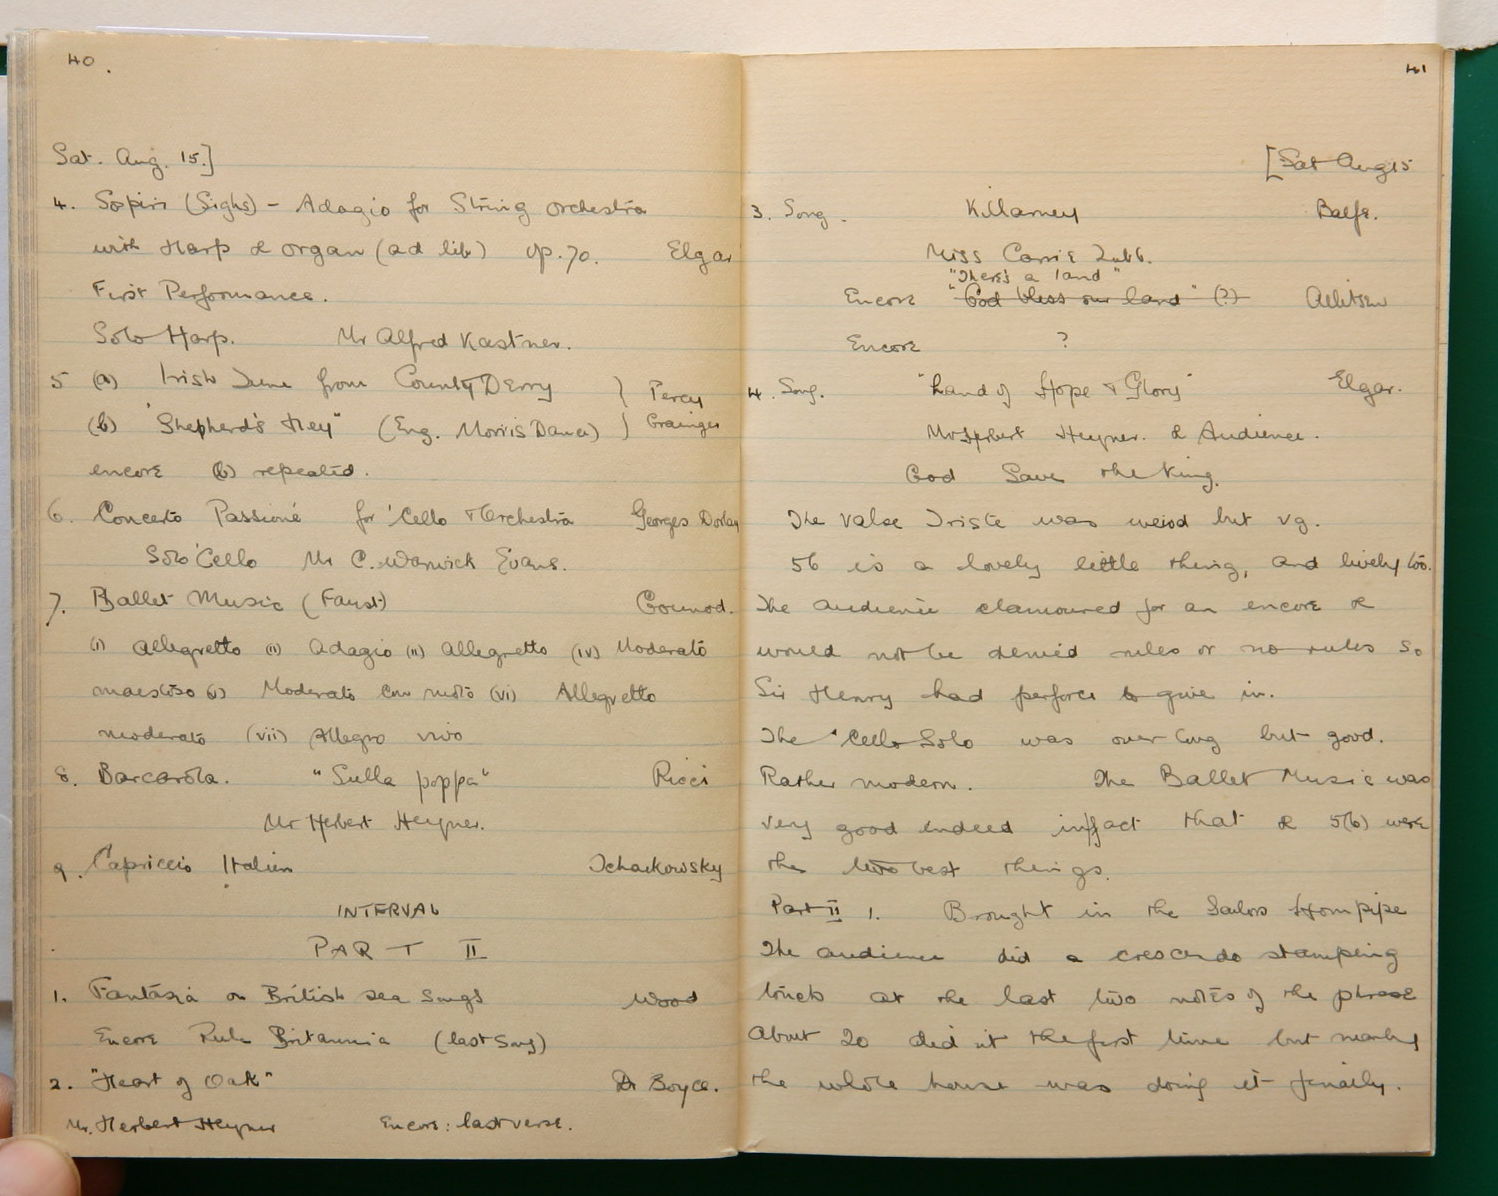 40.
Sat. Aug. 15.]
4. Sospiri (Sighs) - Adagio for String orchestra
with Harp & organ (ad lib) op. 70. Elgar
First Performance.
Solo Harp. Mr Alfred Kastner.
5 (a) Irish Tune from County Derry } Percy
(b) "Shepherd's Hey" (Eng. Morris Dance) } Grainger
encore (b) repeated.
6. Concerto Passioné for 'Cello & Orchestra Georges Dorlay
Solo 'Cello Mr C. Warwick Evans.
7. Ballet Music (Faust) Gounod.
(i) Allegretto (ii) Adagio (iii) Allegretto (iv) Moderato
maestoso (v) Moderato con moto (vi) Allegretto
moderato (vii) Allegro vivo
8. Barcarola. "Sulla poppa" Ricci
Mr Herbert Heyner.
9. Capriccio Italien Tchaikowsky
INTERVAL
PART II
1. Fantasia on British Sea Songs Wood
Encore Rule Britannia (last song)
2. "Heart of Oak" Dr Boyce.
Mr. Herbert Heyner Encore: last verse.
41
[Sat Aug 15
3. Song. Killarney Balfe.
Miss Carrie Tubb.
"There's a land"
Encore "God bless our land" (?) Allitsen
Encore ?
4. Song. "Land of Hope & Glory" Elgar.
Mr Herbert Heyner. & Audience.
God Save the King.
The Valse Triste was weird but vg.
5b is a lovely little thing, and lively too.
The audience clamoured for an encore &
would not be denied rules or no rules so
Sir Henry had perforce to give in.
The 'Cello Solo was over long but good.
Rather modern. The Ballet Music was
very good indeed in fact that & 5(b) were
the two best things.
Part II 1. Brought in the Sailors Hornpipe
The audience did a crescendo stamping
at the last two notes of the phrase
About 20 did it the first time but nearly
the whole house was doing it finally.